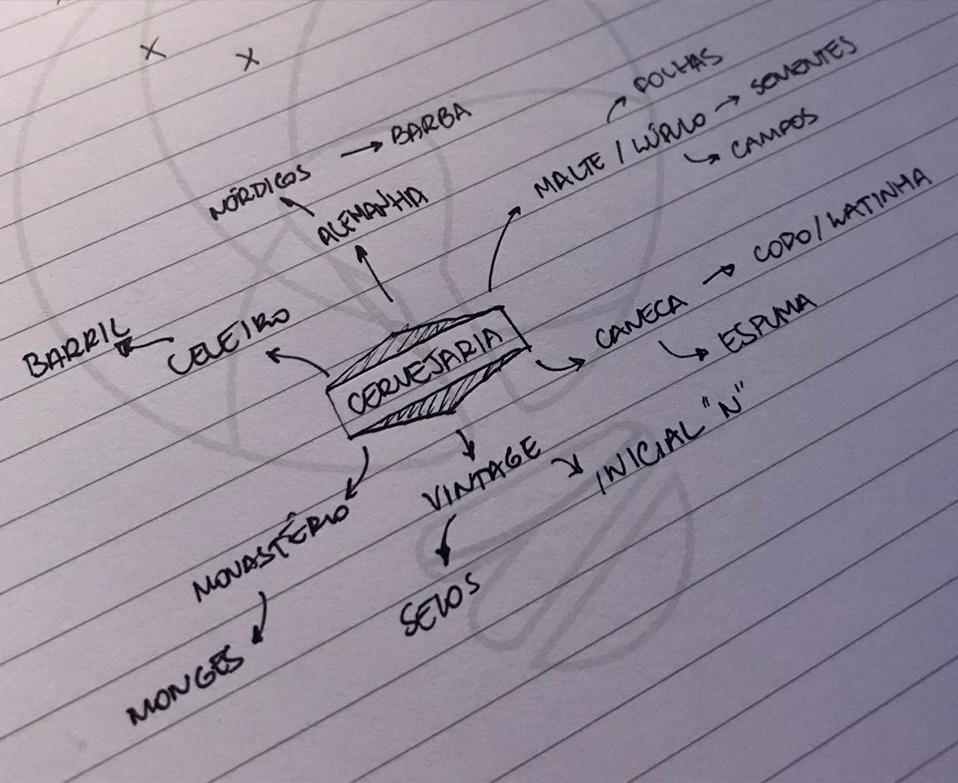 FOLHAS
SEMENTES
MALTE / LÚPULO
CAMPOS
BARBA
NÓRDICOS
ALEMANHA
CODO/LATINHA
CANECA
ESPUMA
BARRIL
CELEIRO
CERVEJARIA
VINTAGE
INICIAL "N"
MONASTÉRIO
SELOS
MONGES